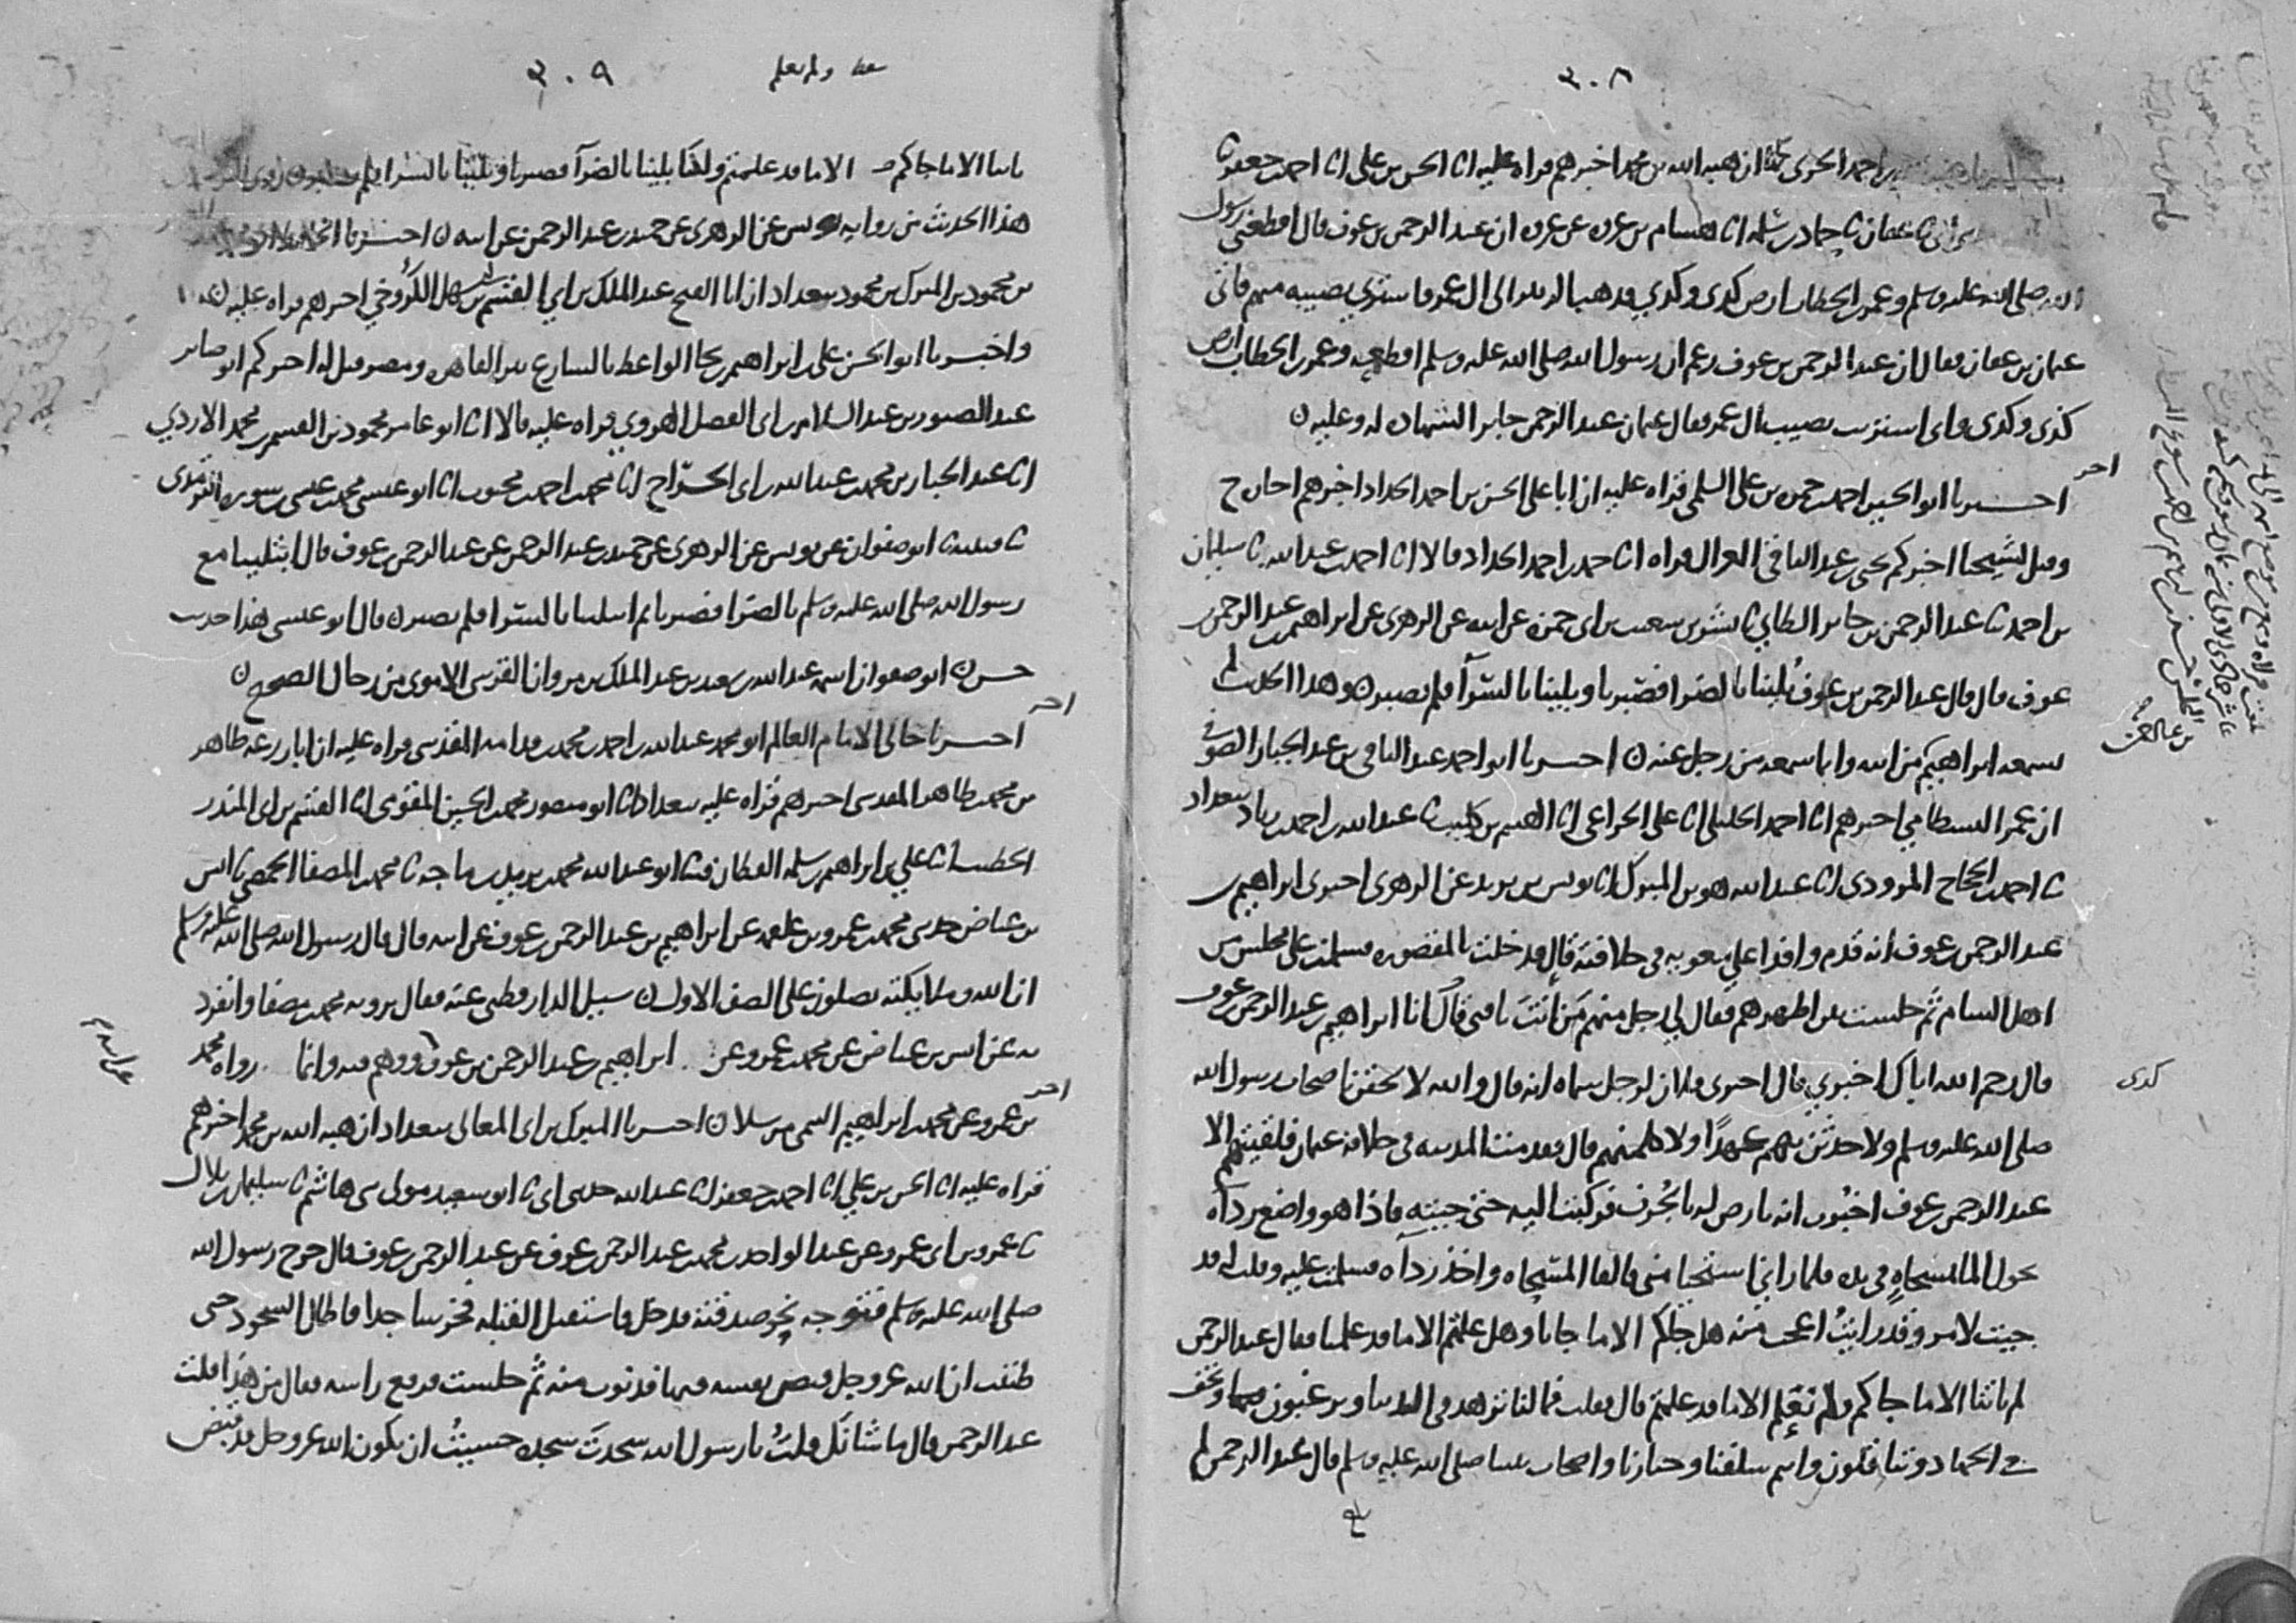 ٣٠٨
احمد الحربي ان هبه الله بن محمد اخبرهم قراه عليه انا الحسن بن علي انا احمد بن جعفر ثنا
عفان ثنا حماد بن سلمه انا هشام بن عروه عن عروه ان عبد الرحمن بن عوف قال اقطعني رسول
الله صلى الله عليه وسلم وعمر بن الخطاب ارض كذى وكذي فذهب الزبير الى ال عمر فاشترى نصيبه منهم فاتى
عثمان بن عفان فقال ان عبد الرحمن بن عوف زعم ان رسول الله صلى الله عليه وسلم اقطعه وعمر بن الخطاب ارض
كذى وكذى واني اشتريت نصيب ال عمر فقال عثمان عبد الرحمن جايز الشهاده له وعليه ن
اخبرنا ابو الحسين احمد بن حمزه بن علي السلمي قراه عليه ان ابا علي الحسن بن احمد الحداد اخبرهم اجازه ح
وقيل لشيخنا اخبركم يحيى بن عبد الباقي الغزال قراه انا حمد بن احمد الحداد قالا انا احمد بن عبد الله ثنا سليمان
بن احمد ثنا عبد الرحمن بن جابر الطاي ثنا بشر بن شعيب بن ابي حمزه عن ابيه عن الزهري عن ابراهيم بن عبد الرحمن بن
عوف قال قال عبد الرحمن بن عوف بُلينا بالضرا فصبرنا وبلينا بالسرّآ فلم نصبر ن وهذا الحديث لم
يسمعه ابراهيم من ابيه وانما سمعه من رجل عنه ن اخبرنا ابو احمد عبد الباقي بن عبد الجبار الصوفي
ان عمر البسطامي اخبرهم انا احمد الخليلي انا علي الخزاعي انا الهيثم بن كليب ثنا عبد الله بن احمد بن زياد ببغداد
ثنا احمد بن الحجاج المروزي انا عبد الله هو بن المبرك انا يونس بن يزيد عن الزهري اخبرني ابراهيم بن
عبد الرحمن بن عوف انه قدم وافدا على معويه في خلافته قال فدخلت المقصوره فسلمت على مجلس من
اهل الشام ثم جلست بين اظهرهم فقال لي رجل منهم مَن انتَ يا فتى قال انا ابراهيم بن عبد الرحمن بن عوف
قال رحم الله اباك اخبرني قال اخبرني فلان لرجل سماه انه قال والله لالحقن باصحاب رسول الله
صلى الله عليه وسلم ولاحدثن بهم عهدًا ولاكلمنهم قال فقدمت المدينه في خلافة عثمان فلقيتهم الا
عبد الرحمن بن عوف اخبرت انه بارض له بالجُرف فركبت اليه حتى جيته فاذا هو واضع ردآه
يحول الما بمسحاهٍ في يده فلما راني استحيا مني فالقا المسحاه واخذ ردآه فسلمت عليه وقلت له قد
جيت لامر وقد رايتُ اعجب منه هل جاكم الا ما جانا وهل علمتم الا ما قد علمنا فقال عبد الرحمن
لم ياتنا الا ما جاكم ولم نعلم الا ما قد علمتم قال فقلت فما لنا نزهد في الدنيا وترغبون ونخف
في الجهاد وتتثاقلون وانتم سلفنا وخيارنا واصحاب نبينا صلى الله عليه وسلم قال عبد الرحمن لم
كذى
٣٠٩
ولم نعلم
ياتنا الا ما جاكم الا ما قد علمتم ولكنا بلينا بالضرآ فصبرنا وبلينا بالسرا فلم
هذا الحديث من روايه يونس عن الزهري عن حميد بن عبد الرحمن عن ابيه ن اخبرنا
بن محمود بن المبرك بن محمود ببغداد ان ابا الفتح عبد الملك بن ابي القسم بن سهل الكَرُوخي اخبرهم قراه عليه
واخبرنا ابو الحسن علي بن ابراهيم بن نجا الواعظ بالشارع بين القاهره ومصر قيل له اخبركم ابو صابر
عبد الصبور بن عبد السلام بن ابي الفضل الهروي قراه عليه قالا انا ابو عامر محمود بن القسم بن محمد الازدي
انا عبد الجبار بن محمد بن عبد الله بن ابي الجرّاح انا محمد بن احمد بن محبوب انا ابو عيسى محمد بن عيسى بن سوره الترمذي
ثنا قتيبه ثنا ابو صفوان عن يونس عن الزهري عن حميد بن عبد الرحمن عن عبد الرحمن بن عوف قال ابتلينا مع
رسول الله صلى الله عليه وسلم بالضرا فصبرنا ثم ابتلينا بالسرا فلم نصبر ن قال ابو عيسى هذا حديث
حسن ن ابو صفوان اسمه عبد الله بن سعيد بن عبد الملك بن مروان القرشي الاموي من رجال الصحيح ن
اخبرنا خالي الامام العالم ابو محمد عبد الله بن احمد بن محمد بن قدامه المقدسي قراه عليه ان ابا زرعه طاهر
بن محمد بن طاهر المقدسي اخبرهم قراه عليه ببغداد انا ابو منصور محمد بن الحسين المقومي انا القسم بن ابي المنذر
الخطيب انا علي بن ابراهيم بن سلمه القطان ثنا ابو عبد الله محمد بن يزيد بن ماجه ثنا محمد بن المصفا الحمصي ثنا انس
بن عياض حدثني محمد بن عمرو بن علقمه عن ابراهيم بن عبد الرحمن بن عوف عن ابيه قال قال رسول الله صلى الله عليه وسلم
ان الله وملايكته يصلون على الصف الاول ن سيل الدارقطني عنه فقال يرويه محمد بن مصفا وانفرد
به عن انس بن عياض عن محمد بن عمرو عن ابراهيم بن عبد الرحمن بن عوف ووهم فيه وانما رواه محمد
بن عمرو عن محمد بن ابراهيم التيمي مرسلا ن اخبرنا المبرك بن ابي المعالي ببغداد ان هبه الله بن محمد اخبرهم
قراه عليه انا الحسن بن علي انا احمد بن جعفر انا عبد الله حدثني ابي ثنا ابو سعيد مولى بني هاشم ثنا سليمان بن بلال
ثنا عمرو بن ابي عمرو عن عبد الواحد بن محمد بن عبد الرحمن بن عوف عن عبد الرحمن بن عوف قال خرج رسول الله
صلى الله عليه وسلم فتوجه نحو صدقته فدخل فاستقبل القبله فخر ساجدا فاطال السجود حتى
ظننت ان الله عز وجل قبض نفسه فيها فدنوت منه ثم جلست فرفع راسه فقال من هذا قلت
عبد الرحمن قال ما شانُك قلتُ يا رسول الله سجدتَ سجده حسبتُ ان يكون الله عز وجل قد قبض